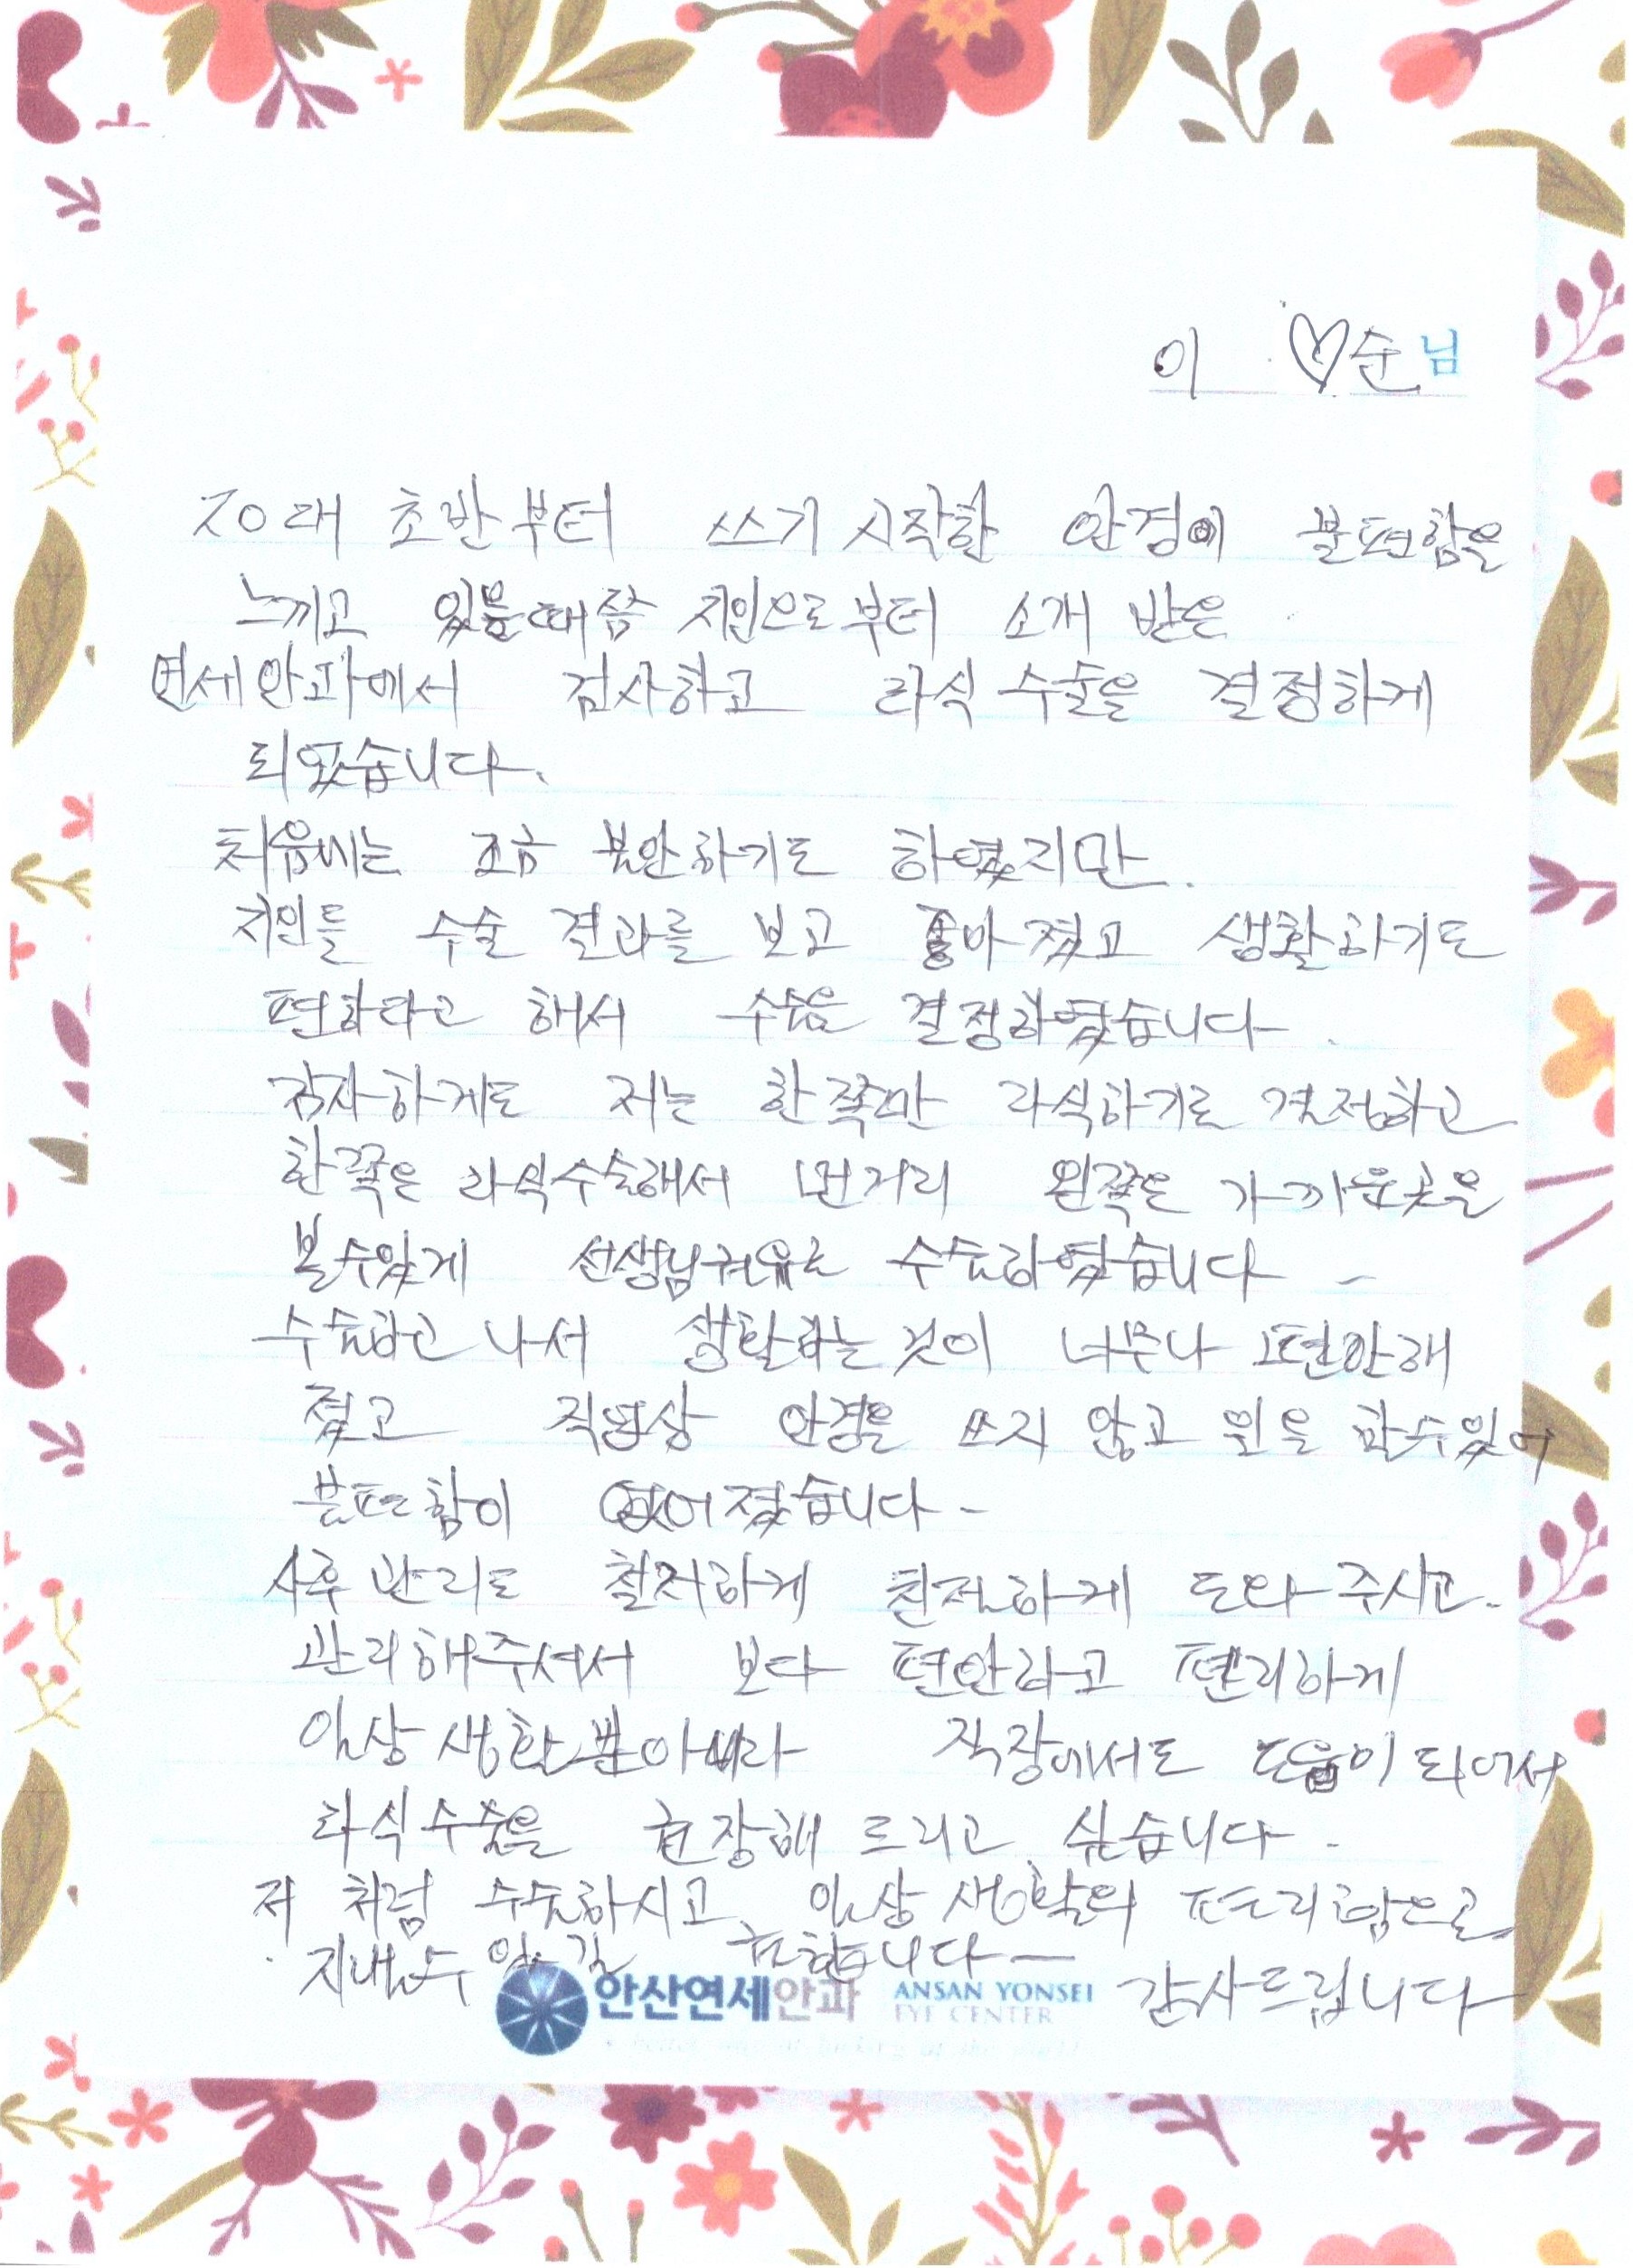 이 ♡순님
50대 초반부터 쓰기 시작한 안경에 불편함을
느끼고 있을때쯤 지인으로부터 소개 받은
연세안과에서 검사하고 라식 수술을 결정하게
되었습니다.
처음에는 조금 불안하기도 하였지만.
지인들 수술 결과를 보고 좋아졌고 생활하기도
편하다고 해서 수술을 결정하였습니다.
감사하게도 저는 한쪽만 라식하기로 결정하고
한쪽은 라식수술해서 먼거리 왼쪽은 가까운곳을
볼수있게 선생님권유로 수술하였습니다
수술하고 나서 생활하는것이 너무나 편안해
졌고 직업상 안경을 쓰지 않고 일을 할수있어
불편함이 없어졌습니다-
사후 관리도 철저하게 친절하게 도와주시고.
관리해주셔서 보다 편안하고 편리하게
일상 생활뿐아니라 직장에서도 도움이 되어서
라식수술을 권장해 드리고 싶습니다.
저 처럼 수술하시고 일상 생활의 편리함으로
지낼수 있길 표합니다-
감사드립니다
안산연세안과 ANSAN YONSEI
EYE CENTER